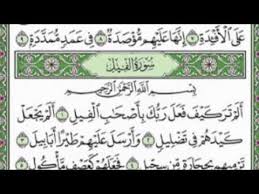 عَلَى الْأَفْـِٔدَةِ ۝٧ إِنَّهَا عَلَيْهِم مُّؤْصَدَةٌ ۝٨ فِي عَمَدٍ مُّمَدَّدَةٍ ۝٩
سُورَةُ الفِيلِ
بِسْمِ اللَّهِ الرَّحْمَٰنِ الرَّحِيمِ
أَلَمْ تَرَ كَيْفَ فَعَلَ رَبُّكَ بِأَصْحَابِ الْفِيلِ ۝١ أَلَمْ يَجْعَلْ
كَيْدَهُمْ فِي تَضْلِيلٍ ۝٢ وَأَرْسَلَ عَلَيْهِمْ طَيْرًا أَبَابِيلَ ۝٣
تَرْمِيهِم بِحِجَارَةٍ مِّن سِجِّيلٍ ۝٤ فَجَعَلَهُمْ كَعَصْفٍ مَّأْكُولٍ ۝٥